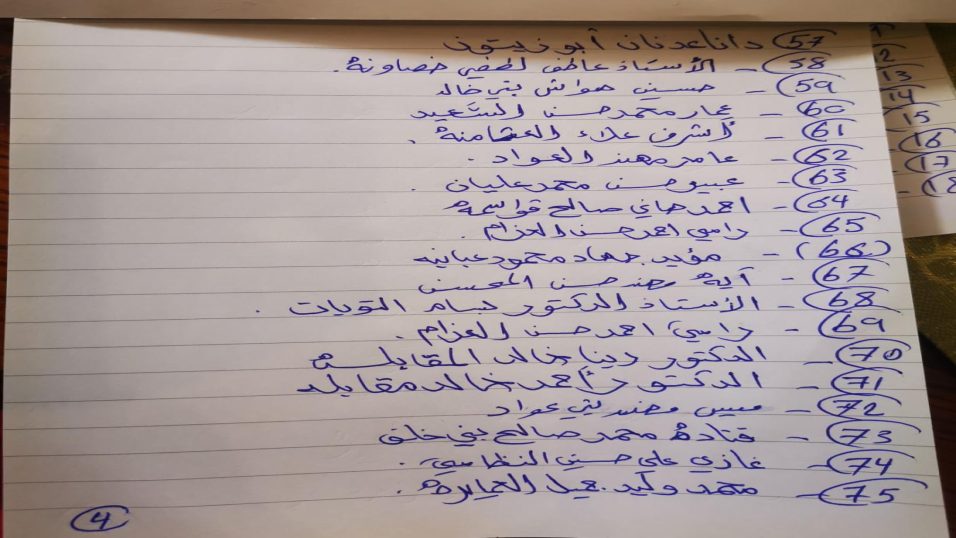 57 دانا عدنان أبو زيتون
58 - الأستاذ عاطف لطفي خصاونة.
59 - حسين هواش بني خالد
60 - عمار محمد حسن السعيد
61 - أشرف علاء العثامنة.
62 - عامر مهند العواد.
63 - عبير حسن محمد عليان.
64 - احمد هاني صالح قواسمة
65 - رامي احمد حسن العزام.
(66) - مؤيد جهاد محمود عبابنه
67 - آية مهند حسن المحسن
68 - الأستاذ الدكتور بسام
69 - رامي احمد حسن العزام.
70 - الدكتور دينا خالد المقابلة
71 - الدكتور أحمد خالد مقابلة
72 - ميس مهند بني عواد
73 - قتادة محمد صالح بني خلف
74 - غازي علي حسين
75 - محمد وليد جميل
4
11
12
13
14
15
- 16
- 17
- 18